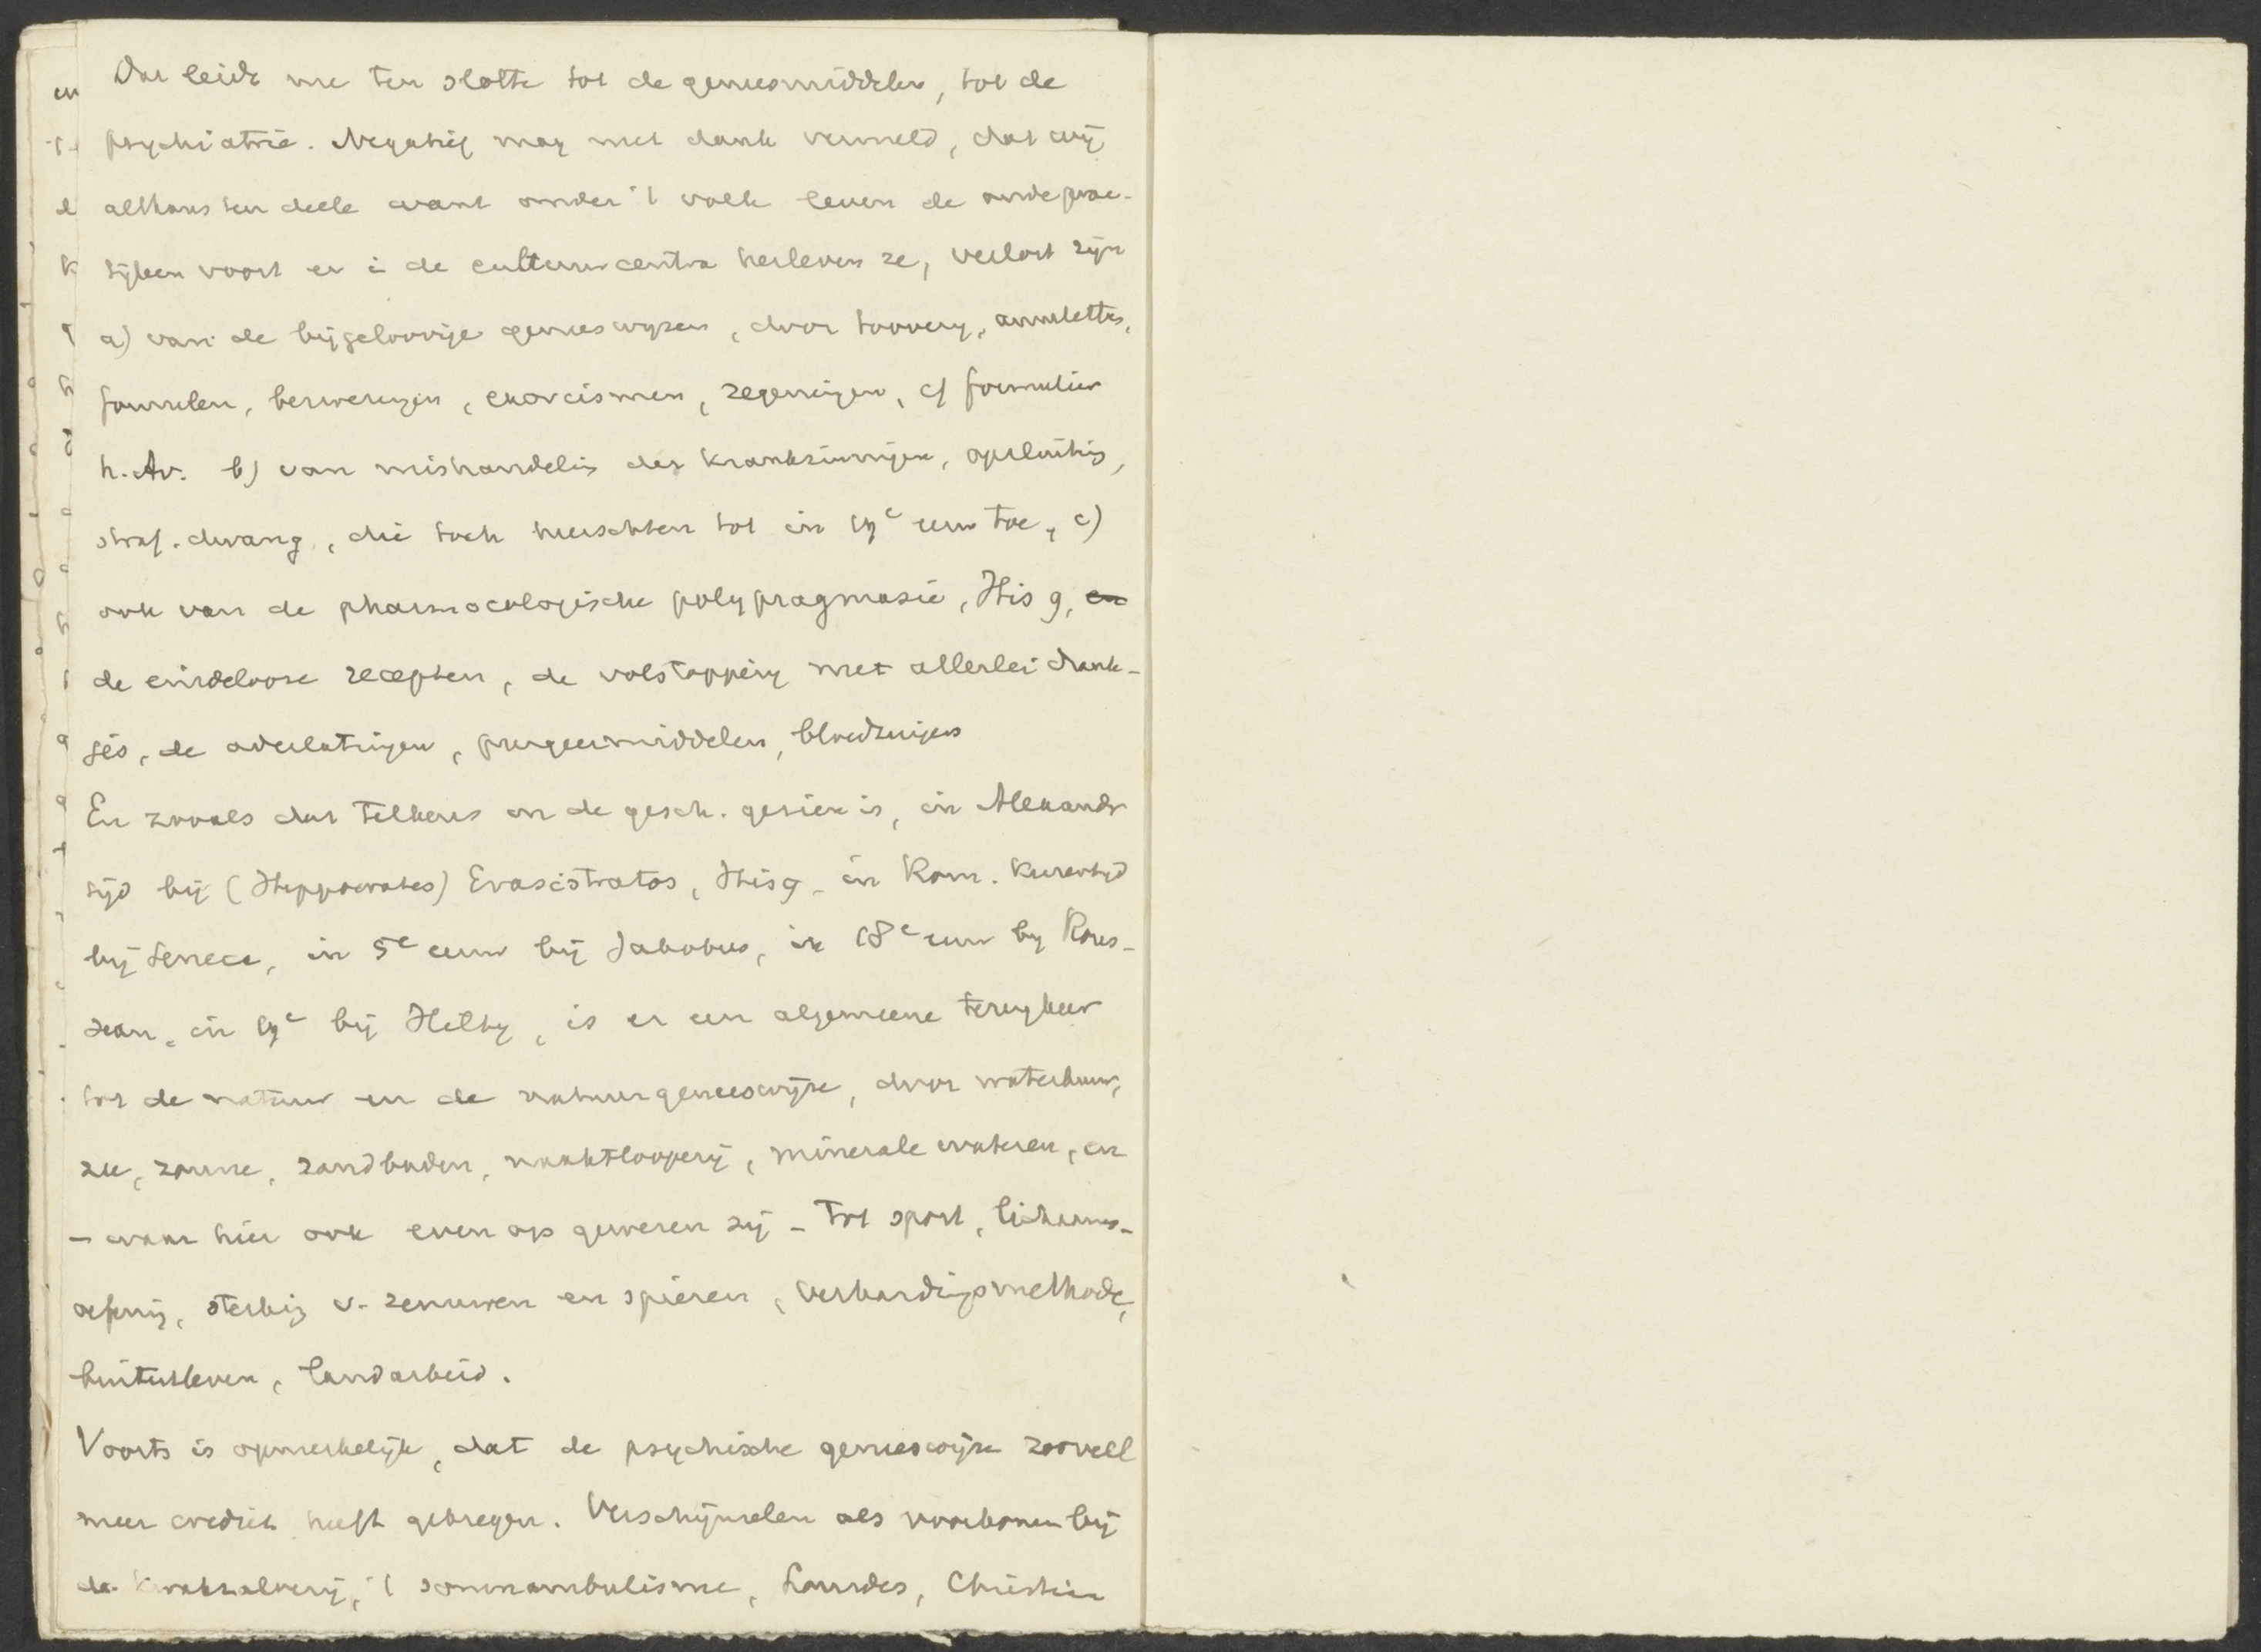 Dat leidt me ten slotte tot de geneesmiddelen, tot de
psychiatrie. Negatief mag met dank vermeld, dat wij
althans ten deele want onder 't volk leven de oude prac-
tijken voort en in de cultuurcentra herleven ze, verlost zijn
a) van de bijgeloovige geneeswijzen, door toovery, amuletten,
formulen, bezweringen, exorcismen, zegeningen, cf formulier
h. Av. b) van mishandeling der krankzinnigen, opsluiting,
straf. dwang, die toch heerschten tot in 19e eeuw toe, c)
ook van de pharmacologische polypragmasie, His 9,
de eindelooze recepten, de volstopping met allerlei drank-
jes, de aderlatingen, purgeermiddelen, bloedzuigers
En zooals dat telkens in de gesch. gezien is, in Alexandr
tijd bij (Hippocrates) Erasistratos, His 9, in Rom. Keizertijd
bij Seneca, in 5e eeuw bij Jakobus, in 18e eeuw by Rous-
seau, in 19e bij , is er een algemeene terugkeer
tot de natuur en de natuurgeneeswijze, door waterkuur,
zee, zonne, zandbaden, naaktlooperij, minerale wateren, en
- waar hier ook even op gewezen zij - tot sport, lichaams-
oefening, sterking v. zenuwen en spieren, verhardingsmethode,
buitenleven, landarbeid.
Voorts is opmerkelijk, dat de psychische geneeswijze zooveel
meer crediet heeft gekregen. Verschijnselen als voorkomen bij
de kwakzalverij, 't somnambulisme, Lourdes, Christian